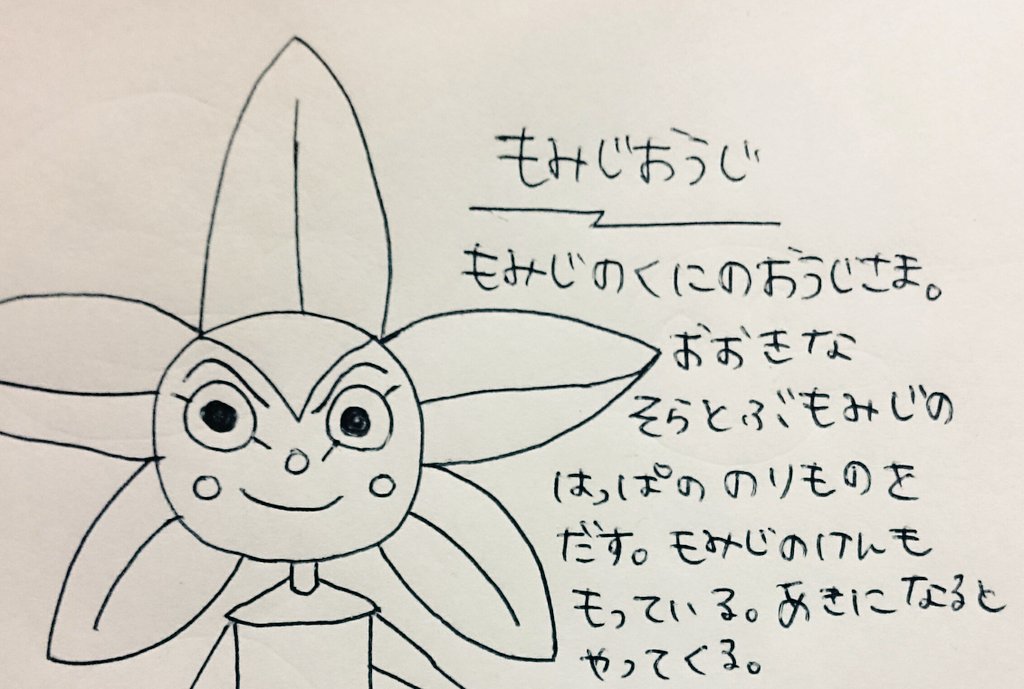 もみじおうじ
もみじのくにのおうじさま。
おおきな
そらとぶもみじの
はっぱののりものを
だす。もみじのけんも
もっている。あきになると
やってくる。